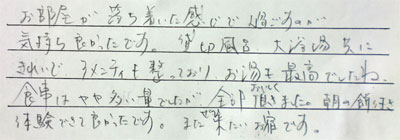 お部屋が落ち着いた感じで過ごすのが
気持ち良かったです。貸切風呂 大浴場共に
きれいで アメニティも整っており お湯も最高でしたね。
食事はやや多い量でしたが 全部おいしく頂きました。朝の餅つき
体験できて良かったです。また ぜひ来たい宿です。